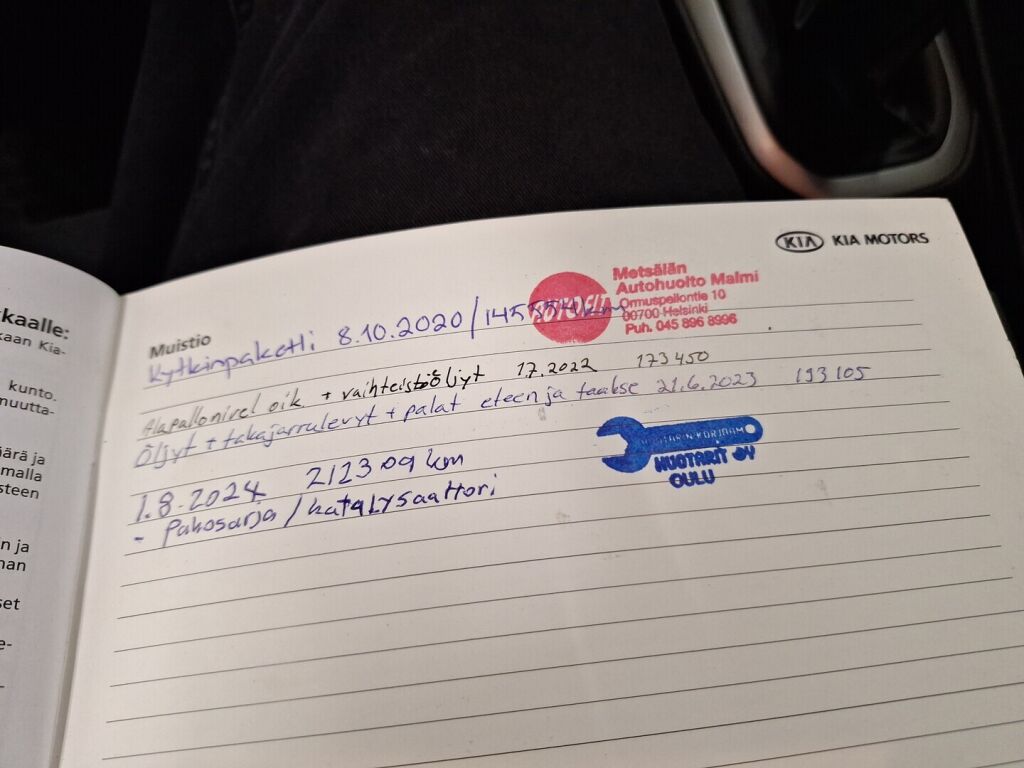 KIA KIA MOTORS
kaalle:
kaan Kia-
kunto.
nuutta-
äärä ja
malla
steen
n ja
nan
set
e-
Muistio
Kytkinpaketti 8.10.2020/145554km
Metsälän
Autohuolto Malmi
Ormuspellontie 10
00700 Helsinki
Puh. 045 896 8996
Alapallonivel oik + vaihteistoöljyt 1.7.2022 173450
Öljyt + takajarrulevyt + palat eteen ja taakse 21.6.2023 193105
1.8.2024 212309 km
- Pakosarja / katalysaattori
HUOTARIT OY
OULU